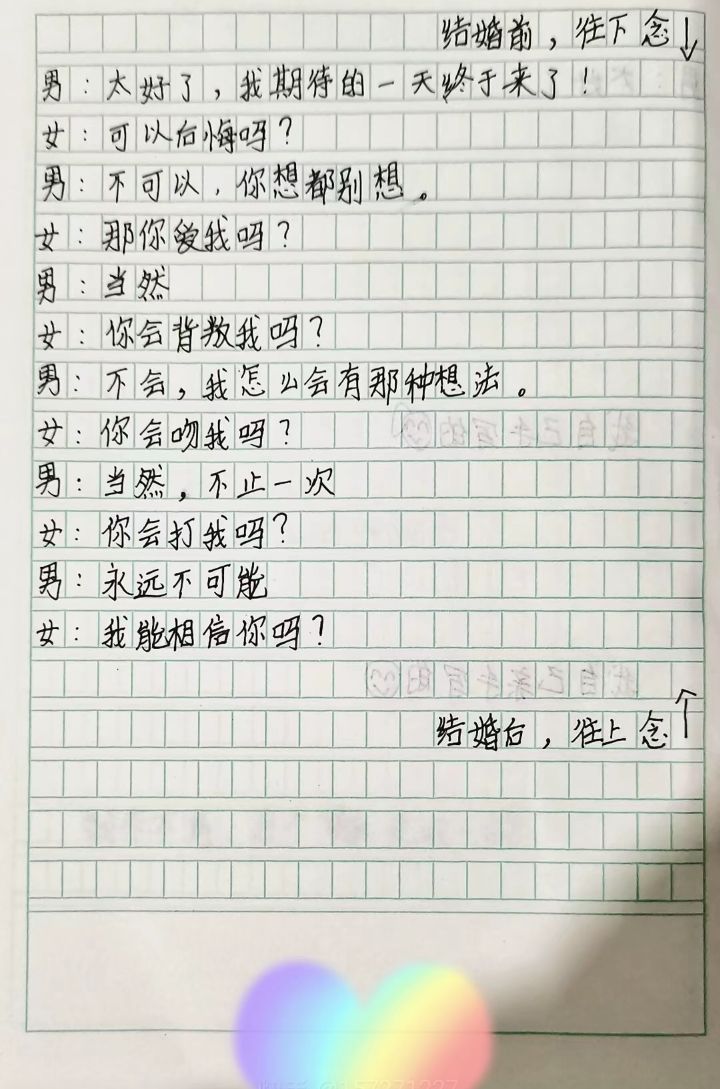 结婚前，往下念↓
男：太好了，我期待的一天终于来了！
女：可以后悔吗？
男：不可以，你想都别想。
女：那你爱我吗？
男：当然
女：你会背叛我吗？
男：不会，我怎么会有那种想法。
女：你会吻我吗？
男：当然，不止一次
女：你会打我吗？
男：永远不可能
女：我能相信你吗？
结婚后，往上念↑